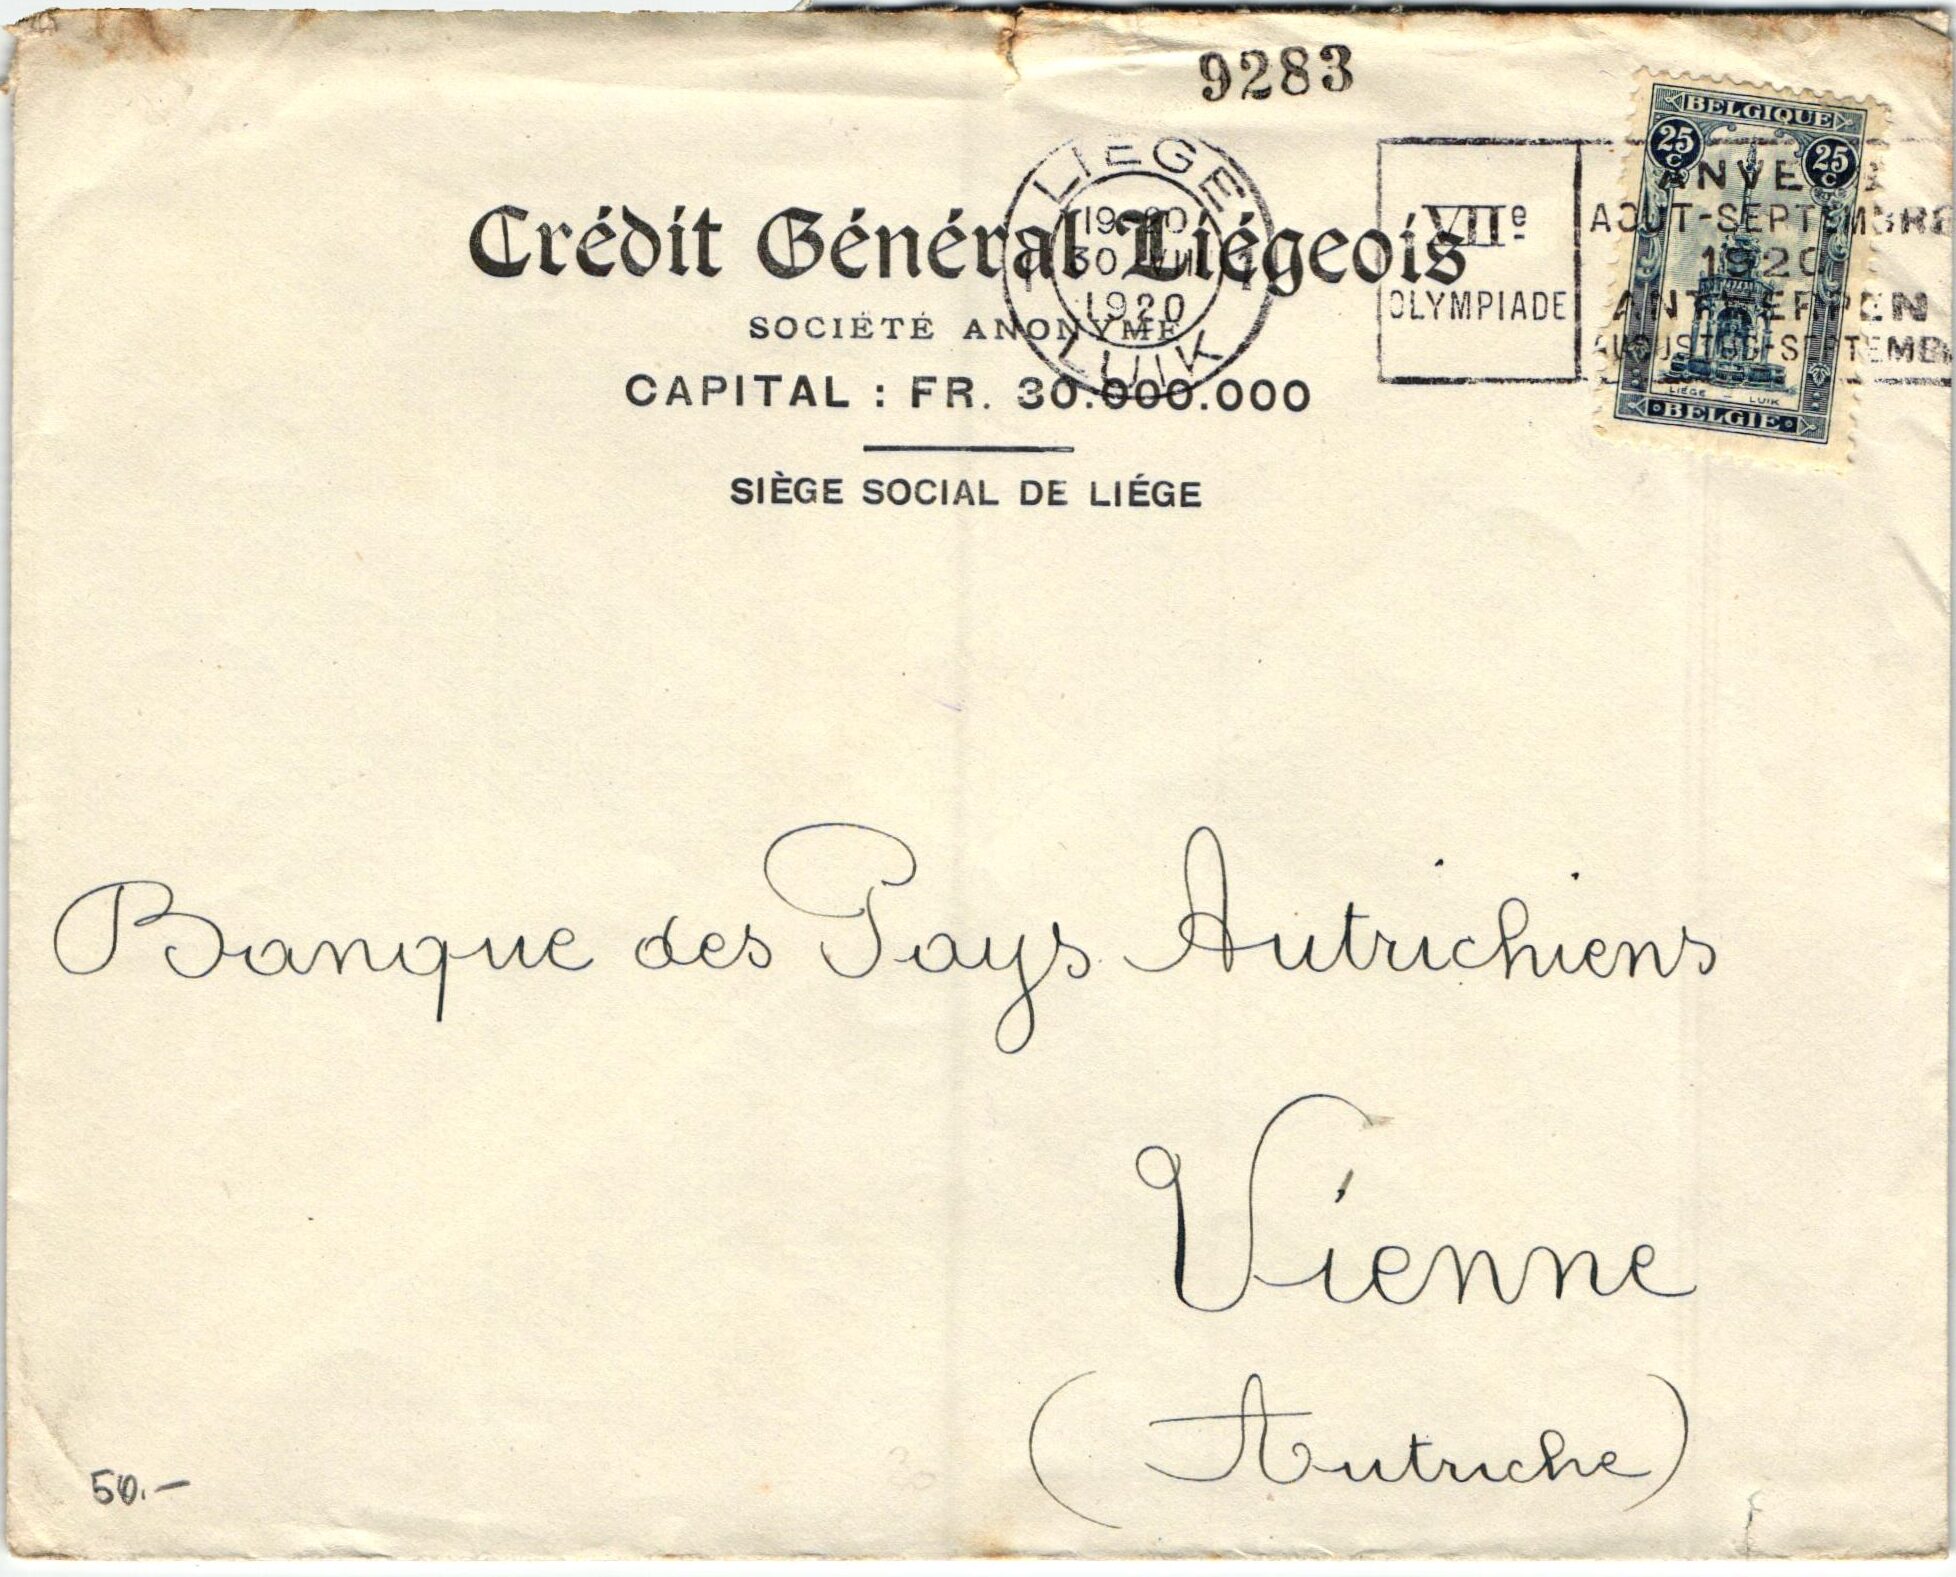 9283
BELGIQUE
25 C 25 C
LIEGE
19-20
30 VII
1920
LUIK
VIIe
OLYMPIADE
ANVERS
AOUT-SEPTEMBRE
1920
ANTWERPEN
AUGUSTUS-SEPTEMB
LIEGE - LUIK
BELGIE
Crédit Général Liégeois
SOCIÉTÉ ANONYME
CAPITAL : FR. 30.000.000
SIÈGE SOCIAL DE LIÉGE
Banque des Pays Autrichiens
Vienne
(Autriche)
50.-